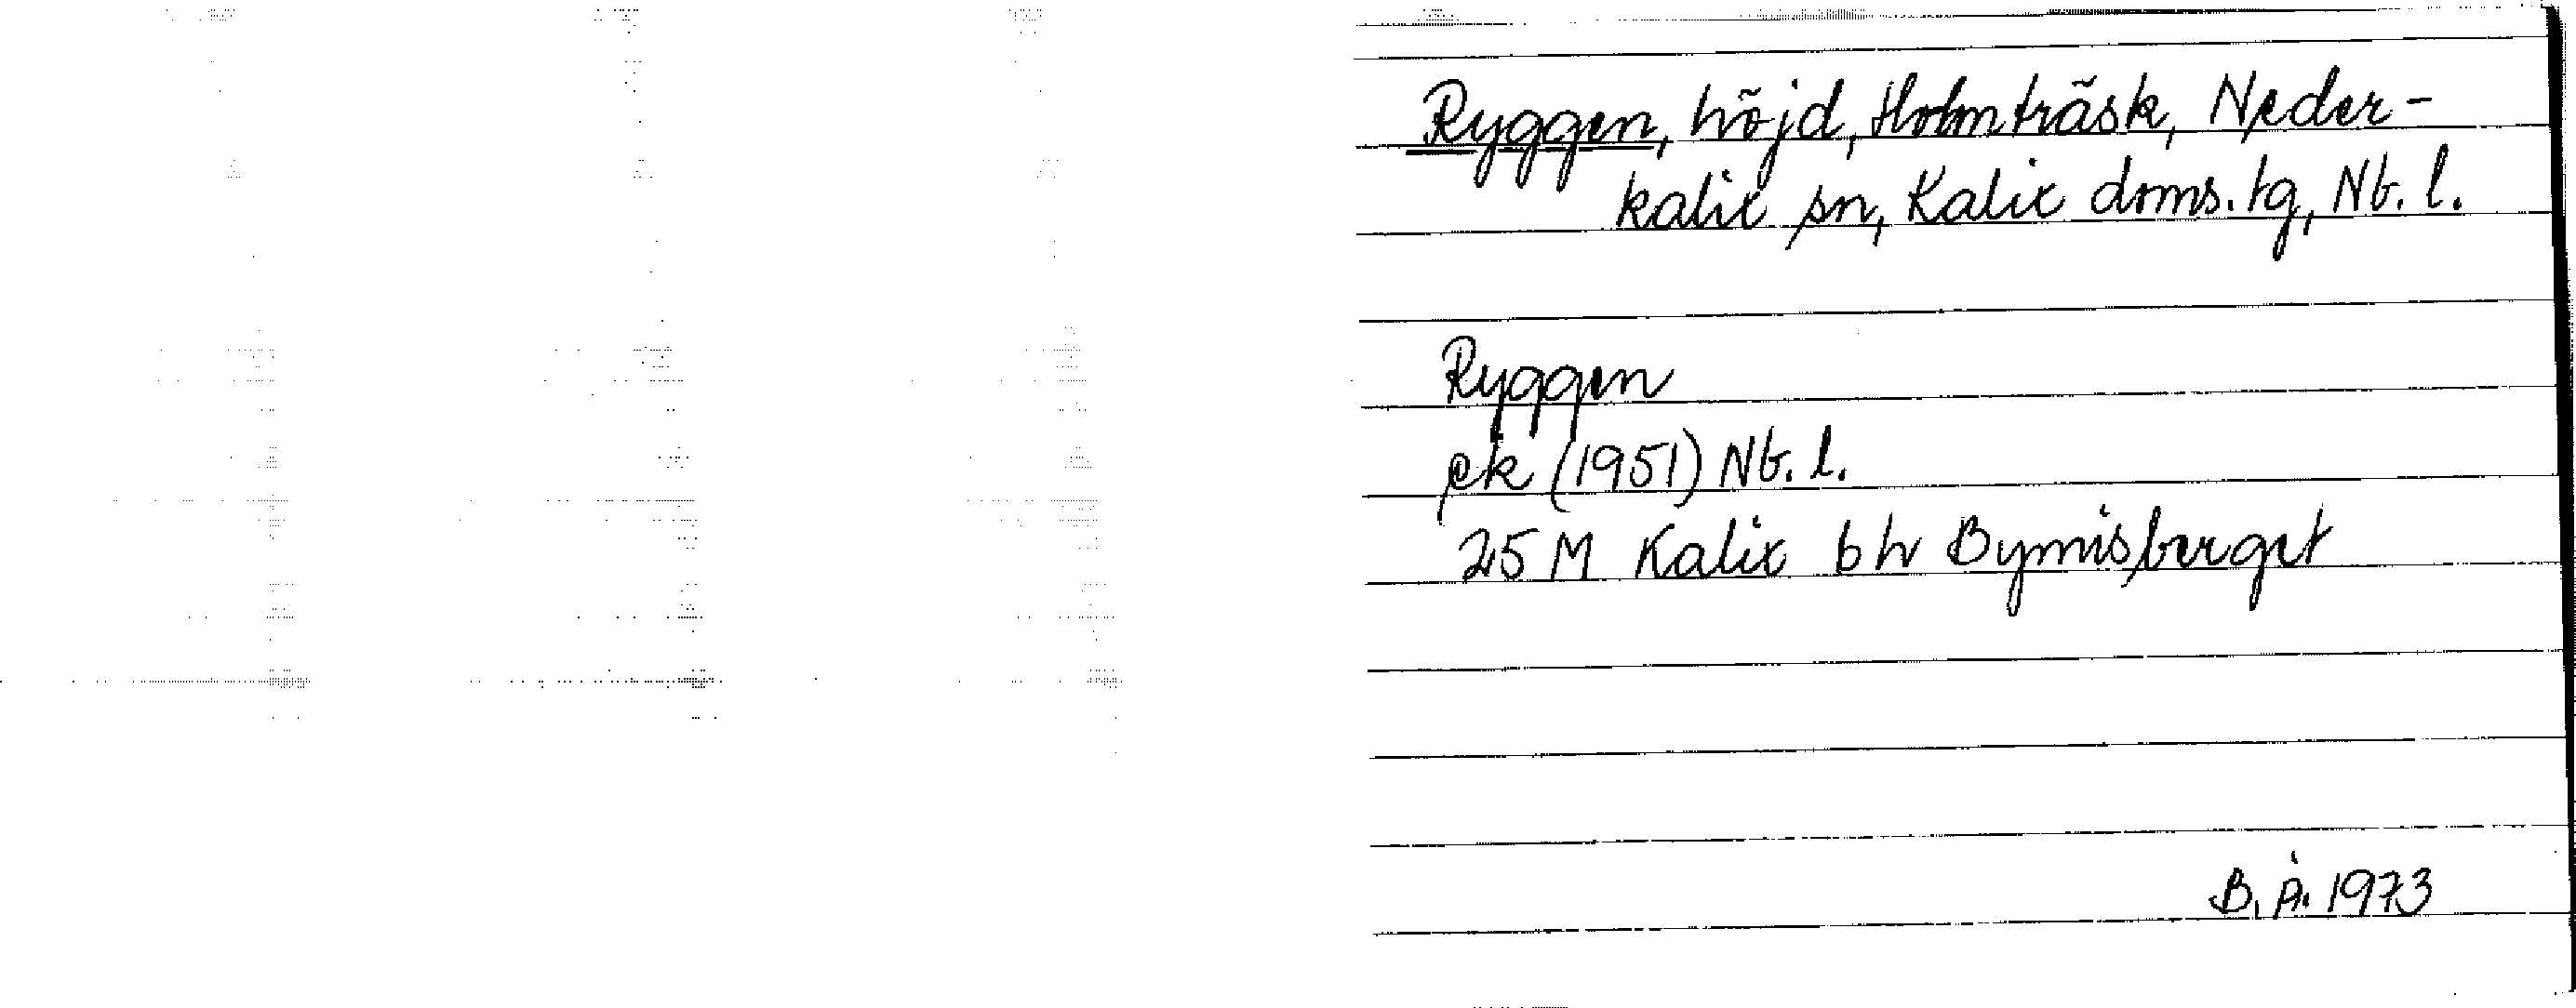 Ryggen, höjd, Holmträsk, Neder-
kalix sn, Kalix doms. tg, Nb. l.
Ryggen
ek (1951) Nb. l.
25 M Kalix bh Bymisberget
B. Å. 1973